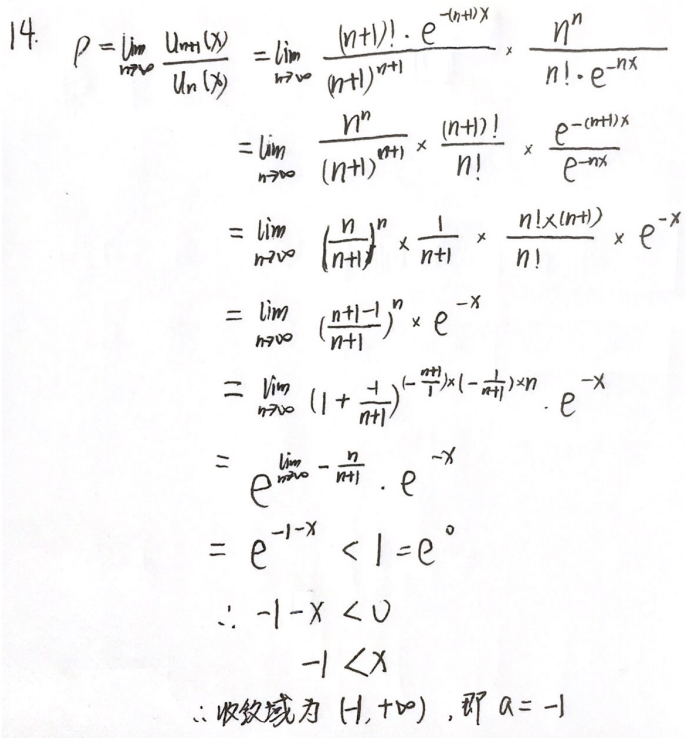 14. ρ = lim n→∞ Un+1(x)/Un(x) = lim n→∞ (n+1)!·e^-(n+1)x / (n+1)^n+1 × n^n / n!·e^-nx
= lim n→∞ n^n/(n+1)^(n+1) × (n+1)!/n! × e^-(n+1)x / e^-nx
= lim n→∞ (n/n+1)^n × 1/n+1 × n!×(n+1)/n! × e^-x
= lim n→∞ (n+1-1/n+1)^n × e^-x
= lim n→∞ (1 + -1/n+1)^(-n+1/1)×(-1/n+1)×n · e^-x
= e^lim n→∞ -n/n+1 · e^-x
= e^-1-x < 1 = e^0
∴ -1-x < 0
-1 < x
∴ 收敛域为 (-1, +∞), 即 a = -1